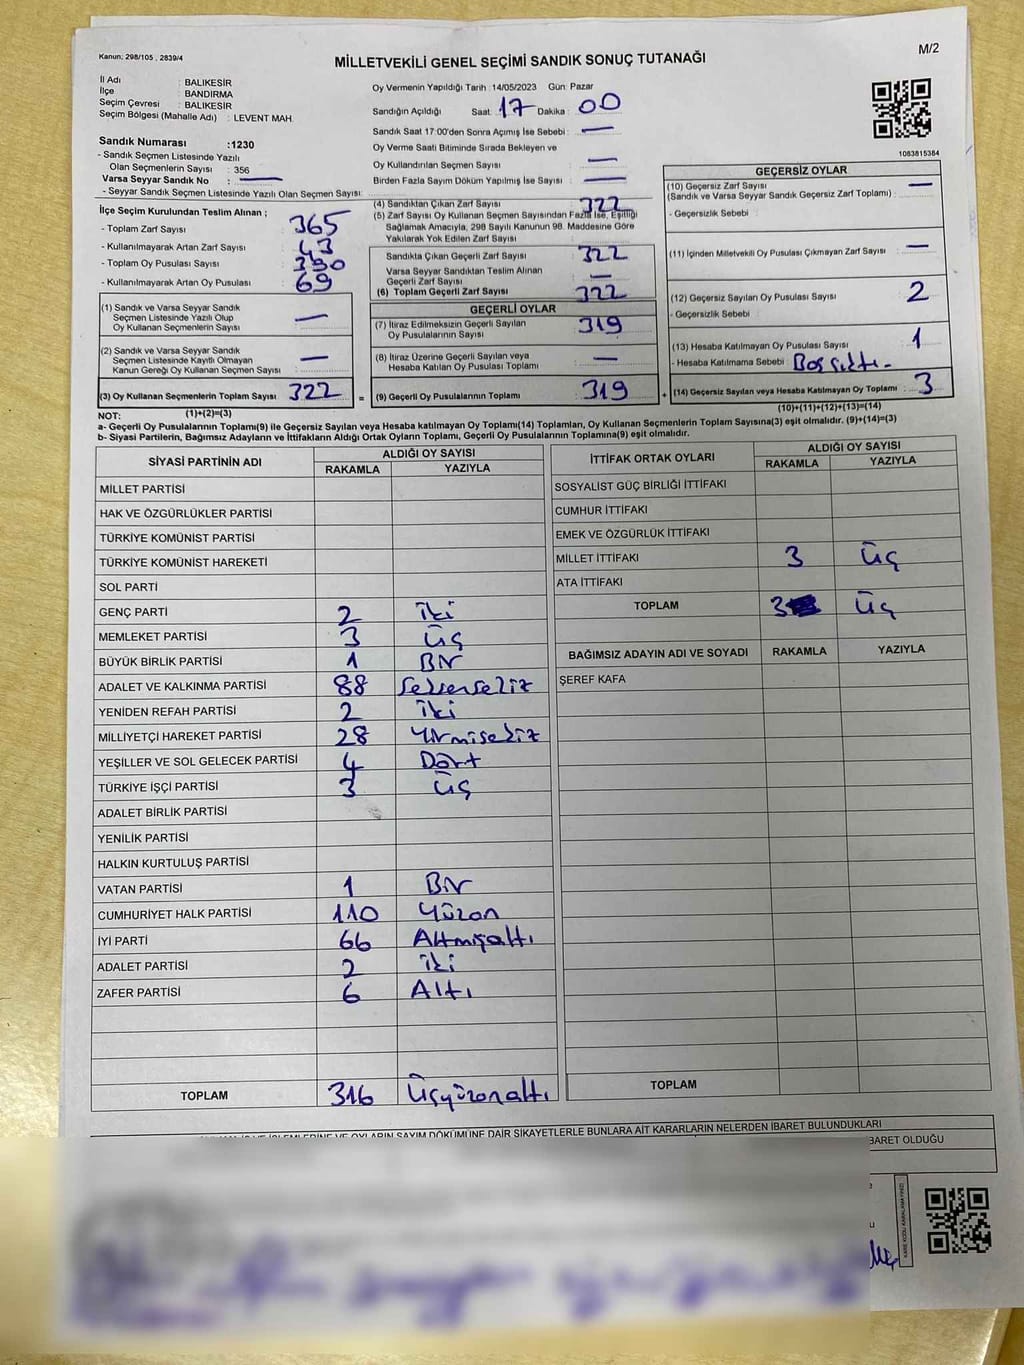 Kanun: 298/105 , 2839/4
MİLLETVEKİLİ GENEL SEÇİMİ SANDIK SONUÇ TUTANAĞI
M/2
İl Adı : BALIKESİR
İlçe : BANDIRMA
Seçim Çevresi : BALIKESİR
Seçim Bölgesi (Mahalle Adı) : LEVENT MAH.
Sandık Numarası :1230
- Sandık Seçmen Listesinde Yazılı
Olan Seçmenlerin Sayısı : 356
Varsa Seyyar Sandık No : —
- Seyyar Sandık Seçmen Listesinde Yazılı Olan Seçmen Sayısı:
Oy Vermenin Yapıldığı Tarih :14/05/2023 Gün: Pazar
Sandığın Açıldığı Saat: 17 Dakika : 00
Sandık Saat 17:00'den Sonra Açımış İse Sebebi : —
Oy Verme Saati Bitiminde Sırada Bekleyen ve
Oy Kullandırılan Seçmen Sayısı —
Birden Fazla Sayım Döküm Yapılmış İse Sayısı : —
1083815384
İlçe Seçim Kurulundan Teslim Alınan ;
- Toplam Zarf Sayısı : 365
- Kullanılmayarak Artan Zarf Sayısı : 43
- Toplam Oy Pusulası Sayısı : 390
- Kullanılmayarak Artan Oy Pusulası : 69
(1) Sandık ve Varsa Seyyar Sandık
Seçmen Listesinde Yazılı Olup
Oy Kullanan Seçmenlerin Sayısı : —
(2) Sandık ve Varsa Seyyar Sandık
Seçmen Listesinde Kayıtlı Olmayan
Kanun Gereği Oy Kullanan Seçmen Sayısı : —
(3) Oy Kullanan Seçmenlerin Toplam Sayısı : 322
(4) Sandıktan Çıkan Zarf Sayısı : 322
(5) Zarf Sayısı Oy Kullanan Seçmen Sayısından Fazla İse, Eşitliği
Sağlamak Amacıyla, 298 Sayılı Kanunun 98. Maddesine Göre
Yakılarak Yok Edilen Zarf Sayısı :
Sandıkta Çıkan Geçerli Zarf Sayısı : 322
Varsa Seyyar Sandıktan Teslim Alınan
Geçerli Zarf Sayısı : —
(6) Toplam Geçerli Zarf Sayısı : 322
GEÇERLİ OYLAR
(7) İtiraz Edilmeksizin Geçerli Sayılan
Oy Pusulalarının Sayısı : 319
(8) İtiraz Üzerine Geçerli Sayılan veya
Hesaba Katılan Oy Pusulası Toplamı : —
= (9) Geçerli Oy Pusulalarının Toplamı : 319
GEÇERSİZ OYLAR
(10) Geçersiz Zarf Sayısı
(Sandık ve Varsa Seyyar Sandık Geçersiz Zarf Toplamı) : —
- Geçersizlik Sebebi :
(11) İçinden Milletvekili Oy Pusulası Çıkmayan Zarf Sayısı : —
(12) Geçersiz Sayılan Oy Pusulası Sayısı : 2
- Geçersizlik Sebebi :
(13) Hesaba Katılmayan Oy Pusulası Sayısı : 1
- Hesaba Katılmama Sebebi : Boş çıktı.
+ (14) Geçersiz Sayılan veya Hesaba Katılmayan Oy Toplamı : 3
NOT: (1)+(2)=(3) (10)+(11)+(12)+(13)=(14)
a- Geçerli Oy Pusulalarının Toplamı(9) ile Geçersiz Sayılan veya Hesaba Katılmayan Oy Toplamı(14) Toplamları, Oy Kullanan Seçmenlerin Toplam Sayısına(3) eşit olmalıdır. (9)+(14)=(3)
b- Siyasi Partilerin, Bağımsız Adayların ve İttifakların Aldığı Ortak Oyların Toplamı, Geçerli Oy Pusulalarının Toplamına(9) eşit olmalıdır.
SİYASİ PARTİNİN ADI ALDIĞI OY SAYISI
RAKAMLA YAZIYLA
MİLLET PARTİSİ
HAK VE ÖZGÜRLÜKLER PARTİSİ
TÜRKİYE KOMÜNİST PARTİSİ
TÜRKİYE KOMÜNİST HAREKETİ
SOL PARTİ
GENÇ PARTİ 2 İki
MEMLEKET PARTİSİ 3 Üç
BÜYÜK BİRLİK PARTİSİ 1 Bir
ADALET VE KALKINMA PARTİSİ 88 Seksensekiz
YENİDEN REFAH PARTİSİ 2 İki
MİLLİYETÇİ HAREKET PARTİSİ 28 Yirmisekiz
YEŞİLLER VE SOL GELECEK PARTİSİ 4 Dört
TÜRKİYE İŞÇİ PARTİSİ 3 Üç
ADALET BİRLİK PARTİSİ
YENİLİK PARTİSİ
HALKIN KURTULUŞ PARTİSİ
VATAN PARTİSİ 1 Bir
CUMHURİYET HALK PARTİSİ 110 Yüzon
İYİ PARTİ 66 Altmışaltı
ADALET PARTİSİ 2 İki
ZAFER PARTİSİ 6 Altı
TOPLAM 316 Üçyüzonaltı
İTTİFAK ORTAK OYLARI ALDIĞI OY SAYISI
RAKAMLA YAZIYLA
SOSYALİST GÜÇ BİRLİĞİ İTTİFAKI
CUMHUR İTTİFAKI
EMEK VE ÖZGÜRLÜK İTTİFAKI
MİLLET İTTİFAKI 3 Üç
ATA İTTİFAKI
TOPLAM 3 Üç
BAĞIMSIZ ADAYIN ADI VE SOYADI RAKAMLA YAZIYLA
ŞEREF KAFA
TOPLAM
OYLARIN SAYIM DÖKÜMÜNE DAİR ŞİKAYETLERLE BUNLARA AİT KARARLARIN NELERDEN İBARET BULUNDUKLARI
İBARET OLDUĞU
KARE KODU KARALAMAYINIZ!